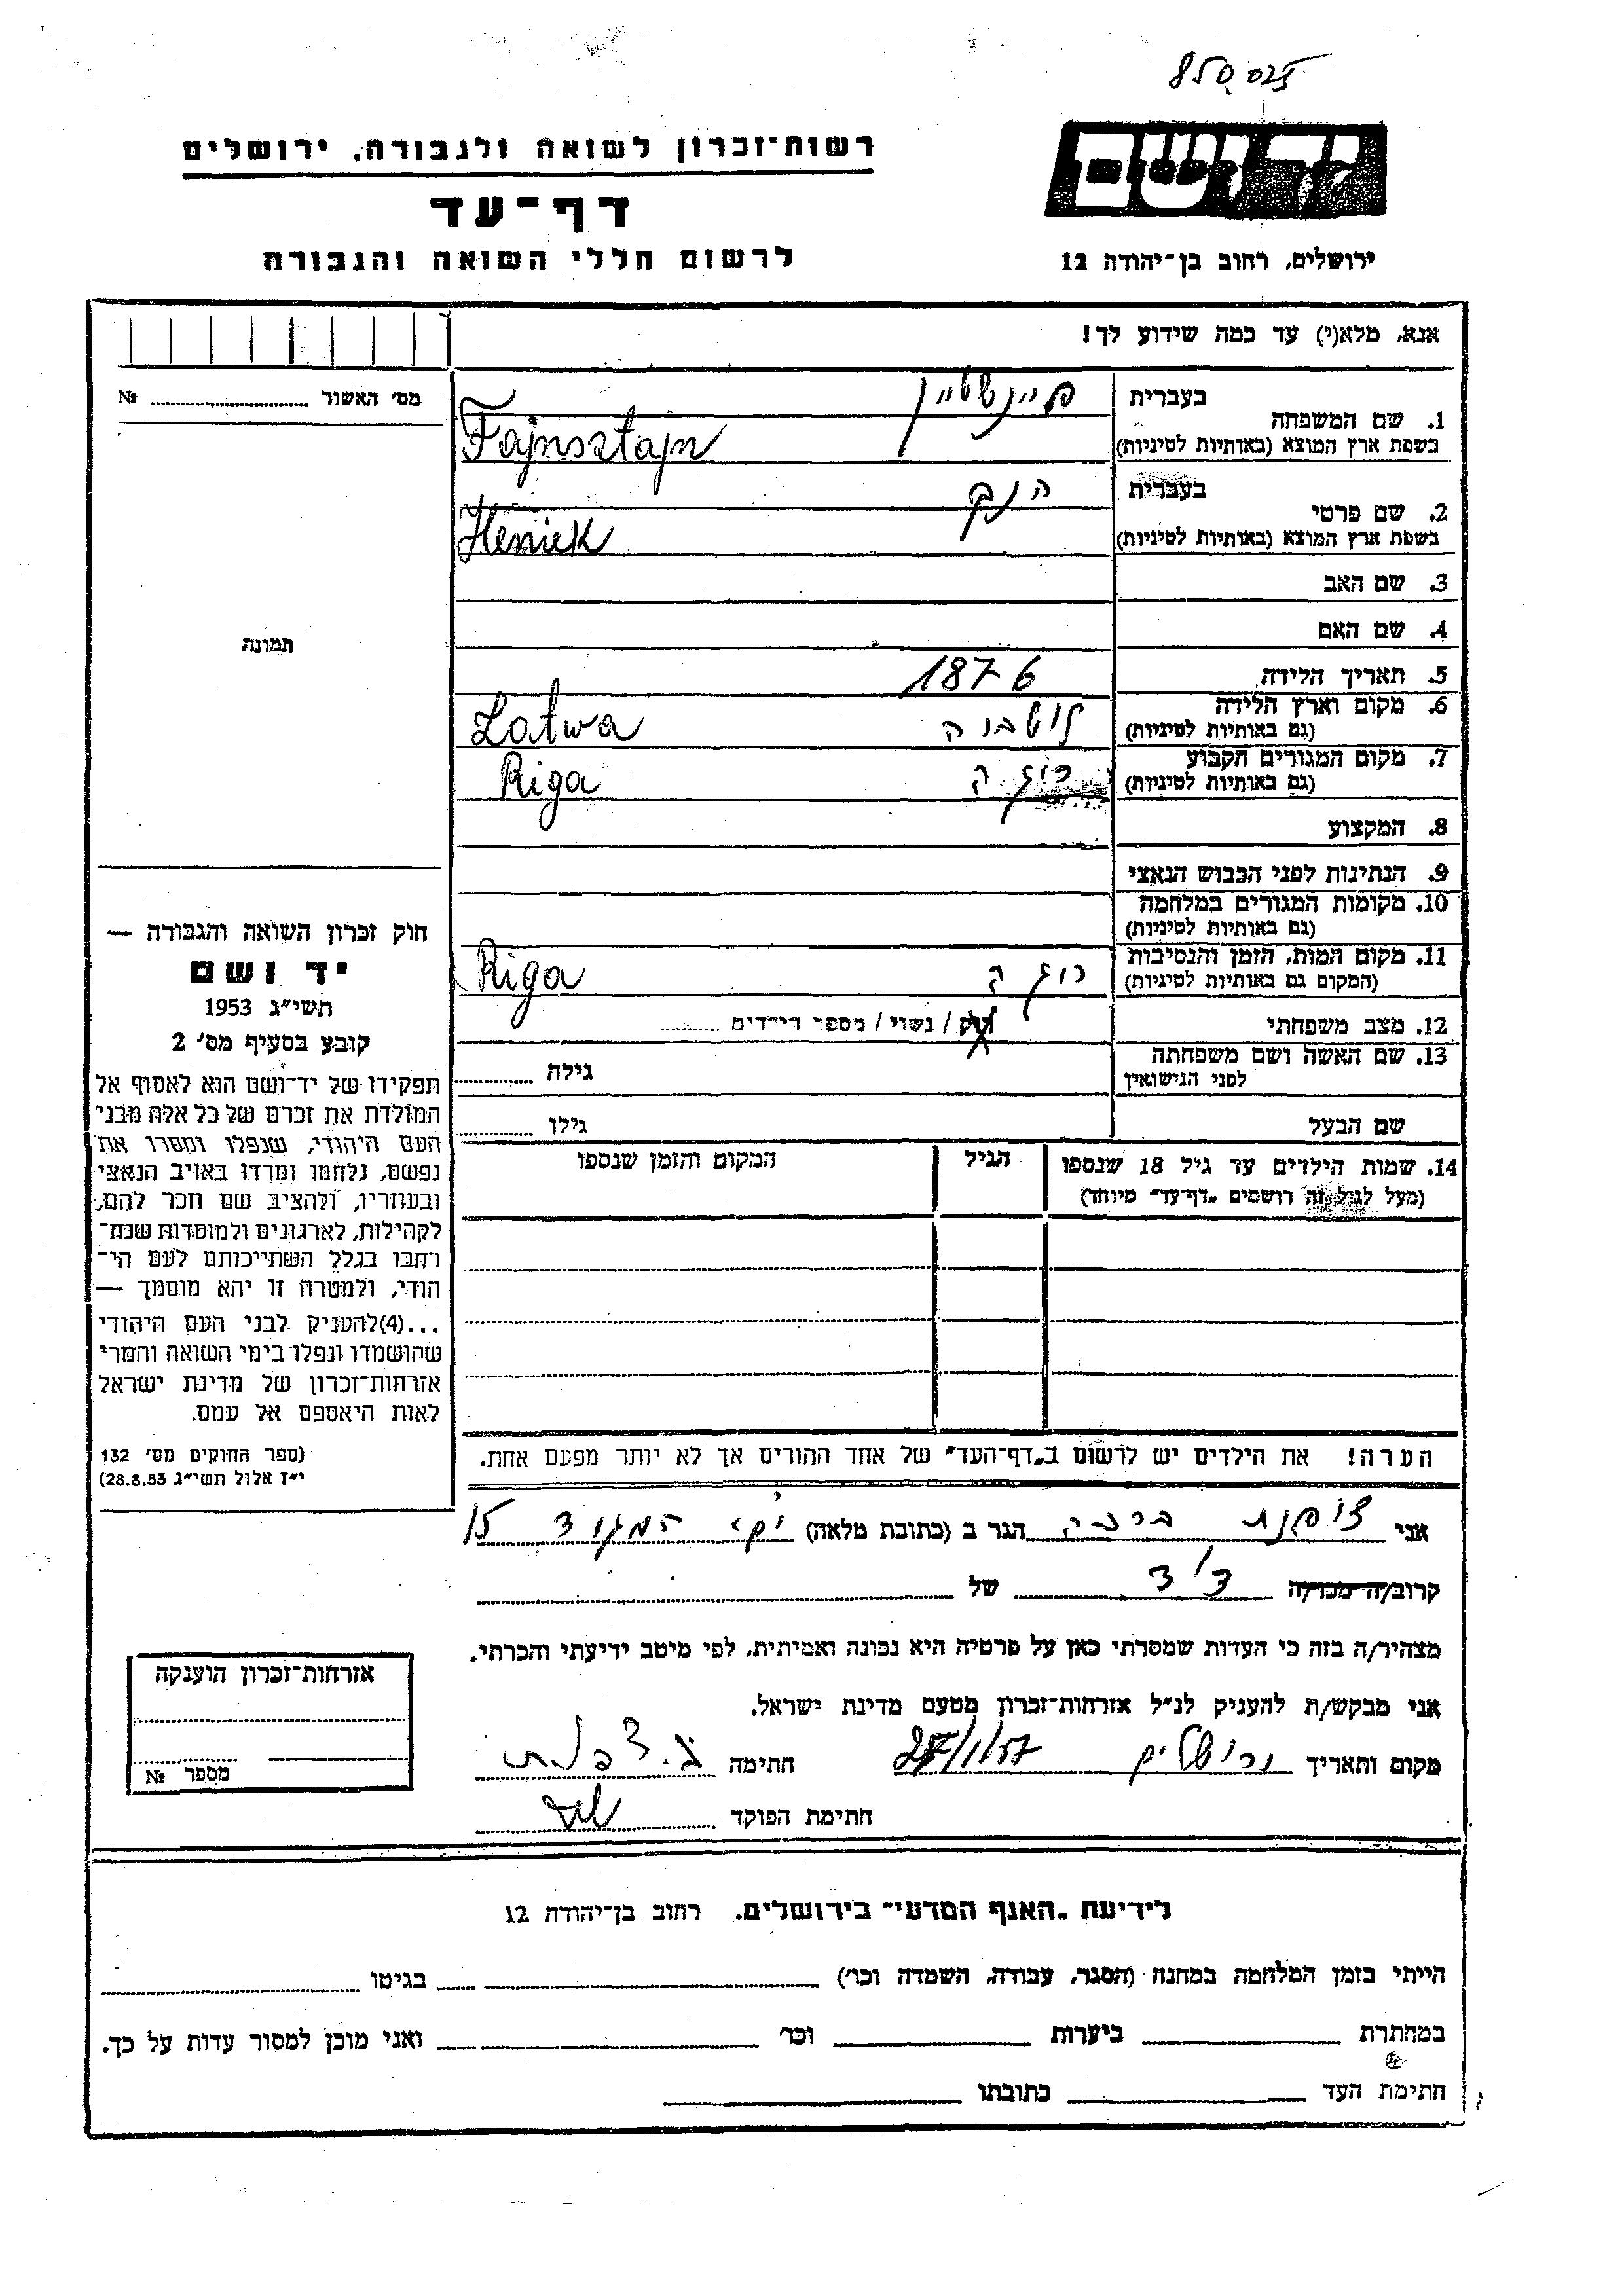 850,025
רשות־זכרון לשואה ולגבורה, ירושלים
יד ושם
דף־עד
לרשום חללי השואה והגבורה
ירושלים, רחוב בן־יהודה 12
אנא, מלא(י) עד כמה שידוע לך!
מס׳ האשור № 
בעברית פיינשטיין
1. שם המשפחה
בשפת ארץ המוצא (באותיות לטיניות) Fajnsztajn
בעברית הניק
2. שם פרטי
בשפת ארץ המוצא (באותיות לטיניות) Heniek
3. שם האב
4. שם האם
תמונה
5. תאריך הלידה 1876
6. מקום וארץ הלידה
(גם באותיות לטיניות) לוטביה Latwa
7. מקום המגורים הקבוע
(גם באותיות לטיניות) ריגה Riga
8. המקצוע
9. הנתינות לפני הכבוש הנאצי
10. מקומות המגורים במלחמה
(גם באותיות לטיניות)
11. מקום המות, הזמן והנסיבות
(המקום גם באותיות לטיניות) ריגה Riga
12. מצב משפחתי רווק / נשוי / מספר הילדים
13. שם האשה ושם משפחתה
לפני הנישואין גילה
שם הבעל גילו
14. שמות הילדים עד גיל 18 שנספו
(מעל לגיל זה רושמים „דף־עד״ מיוחד)
הגיל
המקום והזמן שנספו
הערה! את הילדים יש לרשום ב„דף־העד״ של אחד ההורים אך לא יותר מפעם אחת.
חוק זכרון השואה והגבורה —
יד ושם
תשי״ג 1953
קובע בסעיף מס׳ 2
תפקידו של יד־ושם הוא לאסוף אל
המולדת את זכרם של כל אלה מבני
העם היהודי, שנפלו ומסרו את
נפשם, נלחמו ומרדו באויב הנאצי
ובעוזריו, ולהציב שם וזכר להם,
לקהילות, לארגונים ולמוסדות שנח־
רחבו בגלל השתייכותם לעם הי־
הודי, ולמטרה זו יהא מוסמך —
...(4)להעניק לבני העם היהודי
שהושמדו ונפלו בימי השואה והמרי
אזרחות־זכרון של מדינת ישראל
לאות היאספם אל עמם.
(ספר החוקים מס׳ 132
י״ז אלול תשי״ג 28.8.53)
אני ברכה הגר ב (כתובת מלאה) 15
קרוב/ה מכר/ה דוד של
מצהיר/ה בזה כי העדות שמסרתי כאן על פרטיה היא נכונה ואמיתית, לפי מיטב ידיעתי והכרתי.
אני מבקש/ת להעניק לנ״ל אזרחות־זכרון מטעם מדינת ישראל.
מקום ותאריך ירושלים 27/1/57 חתימה
חתימת הפוקד
אזרחות־זכרון הוענקה
מספר №
לידיעת „האגף המדעי״ בירושלים. רחוב בן־יהודה 12
הייתי בזמן המלחמה במחנה (הסגר, עבודה, השמדה וכו׳) בגיטו
במחתרת ביערות וכו׳ ואני מוכן למסור עדות על כך.
חתימת העד כתובתו